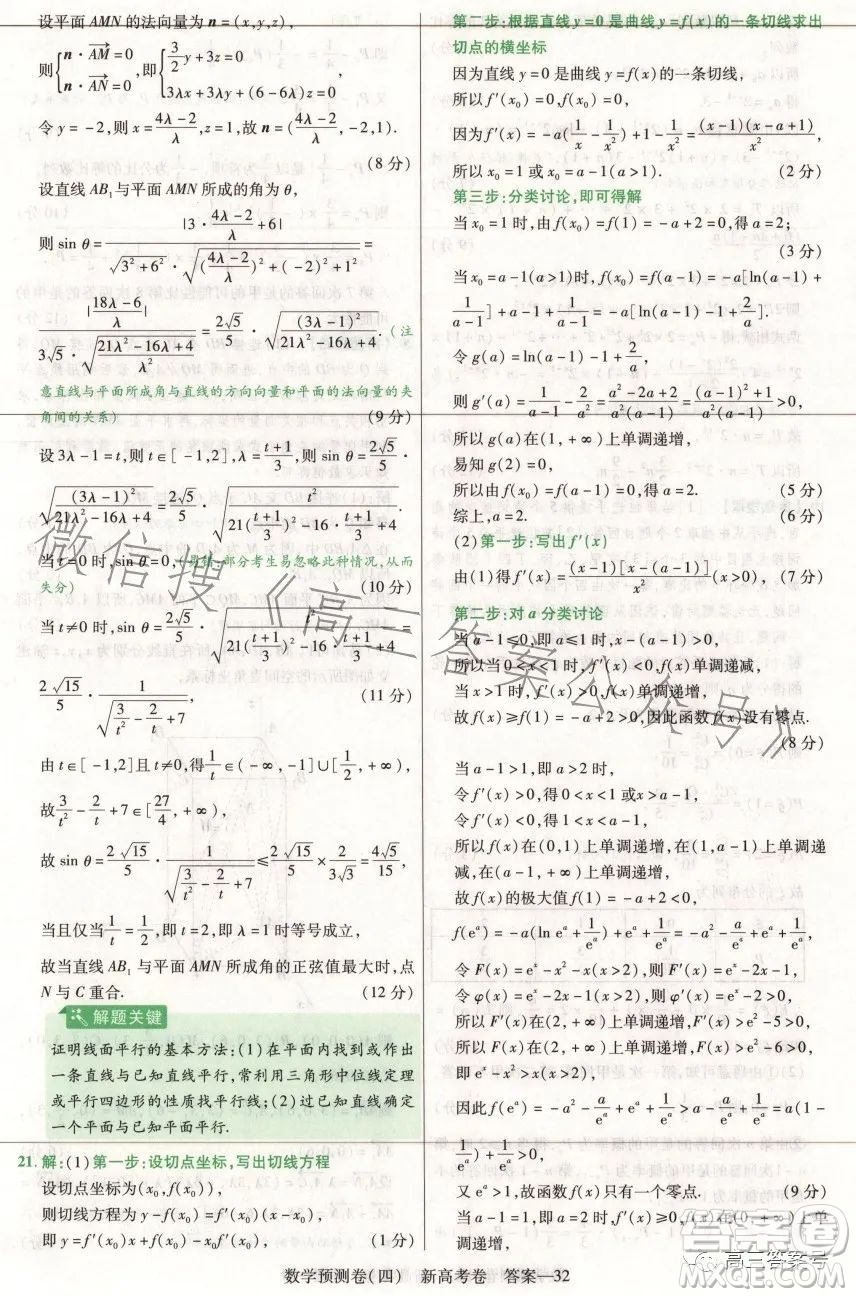 设平面 AMN 的法向量为 n=(x,y,z),
则{n·AM=0 n·AN=0,即{3/2y+3z=0 3λx+3λy+(6-6λ)z=0,
令 y=-2,则 x=(4λ-2)/λ,z=1,故 n=((4λ-2)/λ,-2,1).
(8 分)
设直线 AB₁与平面 AMN 所成的角为 θ,
则 sin θ=|3·(4λ-2)/λ+6|/(√(3²+6²)·√(((4λ-2)/λ)²+(-2)²+1²))=
|(18λ-6)/λ|/(3√5·√((21λ²-16λ+4)/λ²))=2√5/5·√((3λ-1)²/(21λ²-16λ+4)).(注
意直线与平面所成角与直线的方向向量和平面的法向量的夹
角间的关系) (9 分)
设 3λ-1=t,则 t∈[-1,2],λ=(t+1)/3,则 sin θ=2√5/5·
√((3λ-1)²/(21λ²-16λ+4))=2√5/5·√(t²/(21((t+1)/3)²-16·(t+1)/3+4)).
当 t=0 时,sin θ=0.(易错:部分考生易忽略此种情况,从而
失分) (10 分)
当 t≠0 时,sin θ=2√5/5·√(t²/(21((t+1)/3)²-16·(t+1)/3+4))=
2√15/5·1/√(3/t²-2/t+7), (11 分)
由 t∈[-1,2]且 t≠0,得1/t∈(-∞,-1]∪[1/2,+∞),
故3/t²-2/t+7∈[27/4,+∞),
故 sin θ=2√15/5·1/√(3/t²-2/t+7)≤2√15/5×2/(3√3)=4√5/15,
当且仅当1/t=1/2,即 t=2,即 λ=1 时等号成立,
故当直线 AB₁ 与平面 AMN 所成角的正弦值最大时,点
N 与 C 重合. (12 分)
解题关键
证明线面平行的基本方法:(1)在平面内找到或作出
一条直线与已知直线平行,常利用三角形中位线定理
或平行四边形的性质找平行线;(2)过已知直线确定
一个平面与已知平面平行.
21.解:(1)第一步:设切点坐标,写出切线方程
设切点坐标为(x₀,f(x₀)),
则切线方程为 y-f(x₀)=f′(x₀)(x-x₀),
即 y=f′(x₀)x+f(x₀)-x₀f′(x₀), (1 分)
第二步:根据直线 y=0 是曲线 y=f(x)的一条切线求出
切点的横坐标
因为直线 y=0 是曲线 y=f(x)的一条切线,
所以 f′(x₀)=0,f(x₀)=0,
因为 f′(x)=-a(1/x-1/x²)+1-1/x²=(x-1)(x-a+1)/x²,
所以 x₀=1 或 x₀=a-1(a>1). (2 分)
第三步:分类讨论,即可得解
当 x₀=1 时,由 f(x₀)=f(1)=-a+2=0,得 a=2;
(3 分)
当 x₀=a-1(a>1)时,f(x₀)=f(a-1)=-a[ln(a-1)+
1/(a-1)]+a-1+1/(a-1)=-a[ln(a-1)-1+2/a].
令 g(a)=ln(a-1)-1+2/a,
则 g′(a)=1/(a-1)-2/a²=(a²-2a+2)/(a²(a-1))=((a-1)²+1)/(a²(a-1))>0,
所以 g(a)在(1,+∞)上单调递增,
易知 g(2)=0,
所以由 f(x₀)=f(a-1)=0,得 a=2. (5 分)
综上,a=2. (6 分)
(2)第一步:写出 f′(x)
由(1)得 f′(x)=(x-1)[x-(a-1)]/x²(x>0), (7 分)
第二步:对 a 分类讨论
当 a-1≤0,即 a≤1 时,x-(a-1)>0,
所以当 0<x<1 时,f′(x)<0,f(x)单调递减,
当 x>1 时,f′(x)>0,f(x)单调递增,
故 f(x)≥f(1)=-a+2>0,因此函数 f(x)没有零点.
(8 分)
当 a-1>1,即 a>2 时,
令 f′(x)>0,得 0<x<1 或 x>a-1,
所以 f(x)在(0,1)上单调递增,在(1,a-1)上单调递
减,在(a-1,+∞)上单调递增,
故 f(x)的极大值 f(1)=-a+2<0,
f(eᵃ)=-a(ln eᵃ+1/eᵃ)+eᵃ+1/eᵃ=-a²-a/eᵃ+eᵃ+1/eᵃ,
令 F(x)=eˣ-x²-x(x>2),则 F′(x)=eˣ-2x-1,
令 φ(x)=eˣ-2x-1(x>2),则 φ′(x)=eˣ-2>0,
所以 F′(x)在(2,+∞)上单调递增,F′(x)>e²-5>0,
所以 F(x)在(2,+∞)上单调递增,F(x)>e²-6>0,
即 eˣ>x²+x(x>2),
因此 f(eᵃ)=-a²-a/eᵃ+eᵃ+1/eᵃ>-a²-a/eᵃ+a²+a+1/eᵃ=a(1-
1/eᵃ)+1/eᵃ>0,
又 eᵃ>a-1,故函数 f(x)只有一个零点. (9 分)
当 a-1=1,即 a=2 时,f′(x)≥0,f(x)在(0,+∞)上单
调递增,
数学预测卷(四) 新高考卷 答案—32
微信搜《高三答案公众号》
高三答案号
答案圈
MXQE.COM